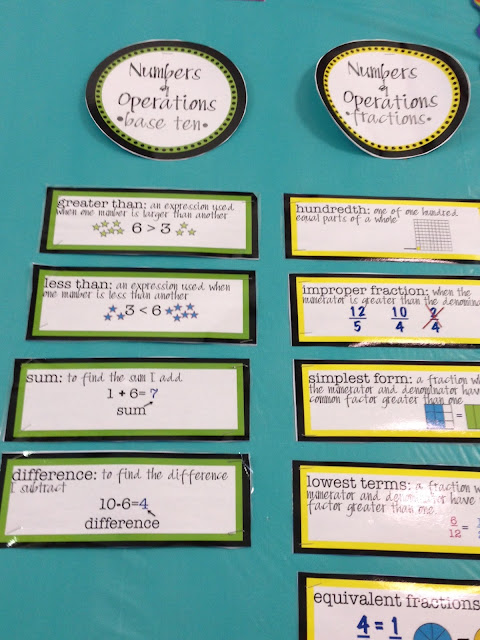 Numbers
&
Operations
•base ten•
greater than: an expression used
when one number is larger than another
6 > 3
less than: an expression used when
one number is less than another
3 < 6
sum: to find the sum I add
1 + 6= 7
sum
difference: to find the difference
I subtract
10-6=4
difference
Numbers
&
Operations
•fractions•
hundredth: one of one hundred
equal parts of a whole
improper fraction: when the
numerator is greater than the
12 10 2
5 4 4
simplest form: a fraction
the numerator and denominator have
common factor greater than one
=
lowest terms: a fraction
numerator and denominator have
factor greater than one
6 =
12
equivalent fractions
4 = 1